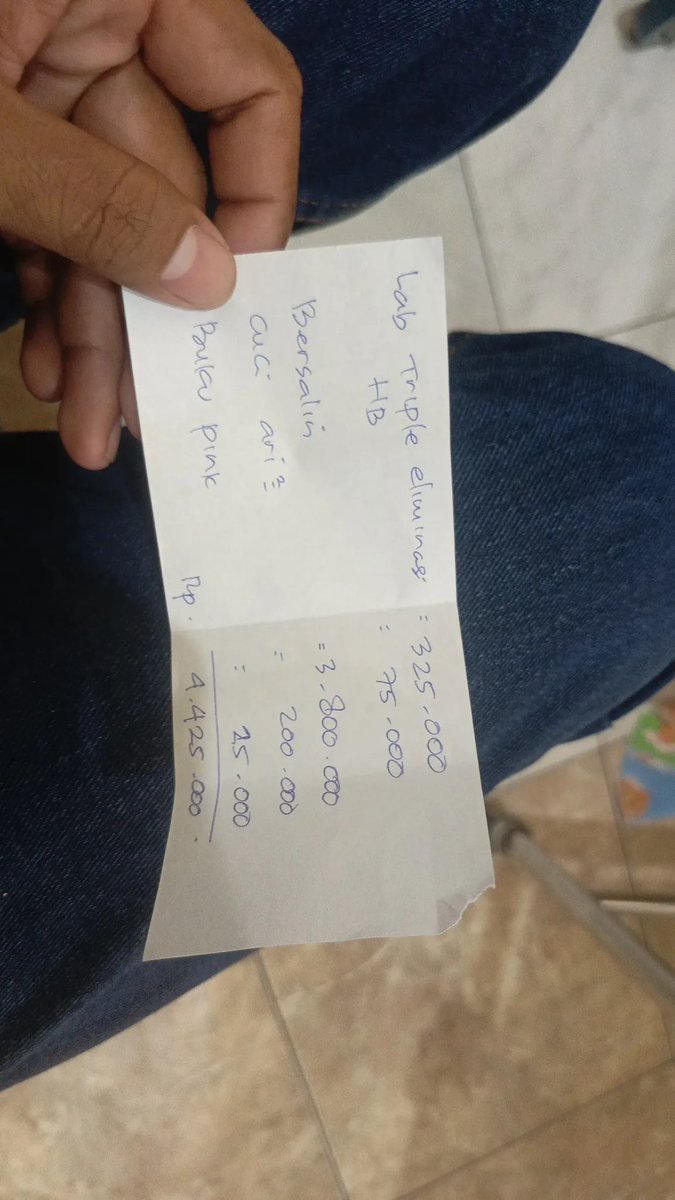 Lab Triple eliminasi = 325.000
HB = 75.000
Bersalin = 3.800.000
cuci ari² = 200.000
Buku pink = 25.000
Rp. 4.425.000.